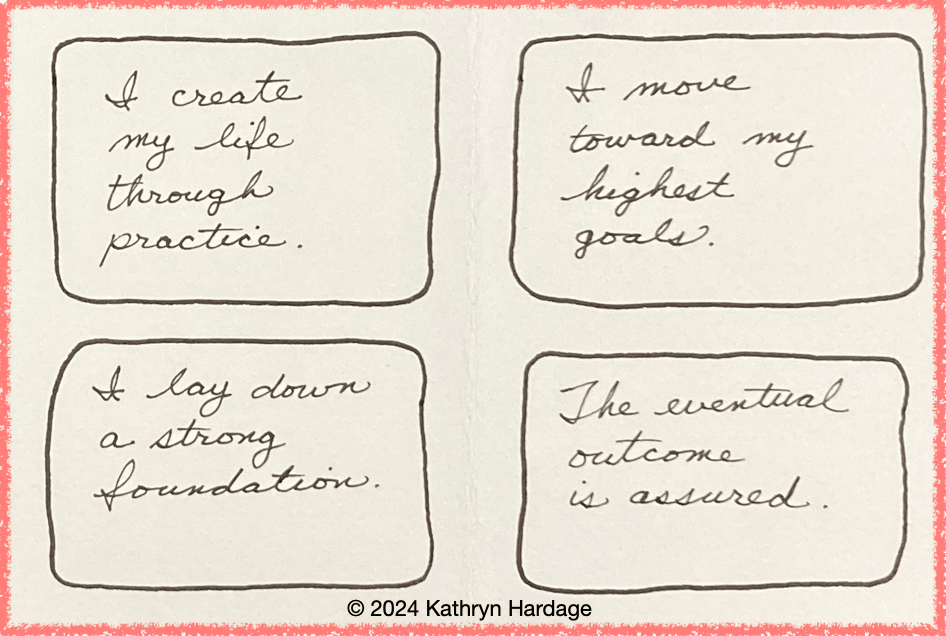 I create
my life
through
practice.
I move
toward my
highest
goals.
I lay down
a strong
foundation.
The eventual
outcome
is assured.
© 2024 Kathryn Hardage